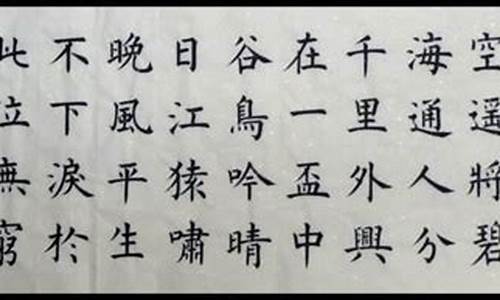 空遙將碧
海通人分
千里外興
在一盃中
谷鳥吟晴
日江猿嘯
晚風平生
不下淚於
此泣無窮